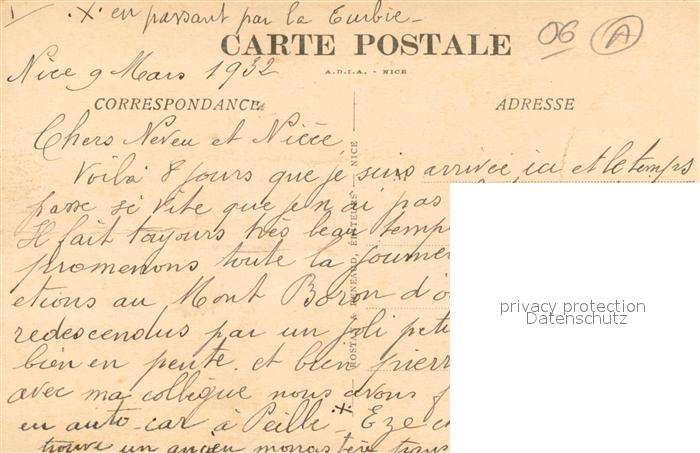 1 X en passant par la Turbie -
CARTE POSTALE
06 A
A.D.I.A. - NICE
Nice 9 Mars 1932
CORRESPONDANCE
ADRESSE
Chers Neveu et Nièce
Voilà 8 jours que je suis arrivée ici et le temps
passe si vite que je n'ai pas
Il fait toujours très beau temps
promenons toute la journée
étions au Mont Boron d'o
redescendus par un joli peti
bien en pente et bien pierr
avec ma collègue nous avons f
en auto-car à Peille X - Eze
trouve un ancien monastère trans
ÉDITEURS - NICE
privacy protection
Datenschutz